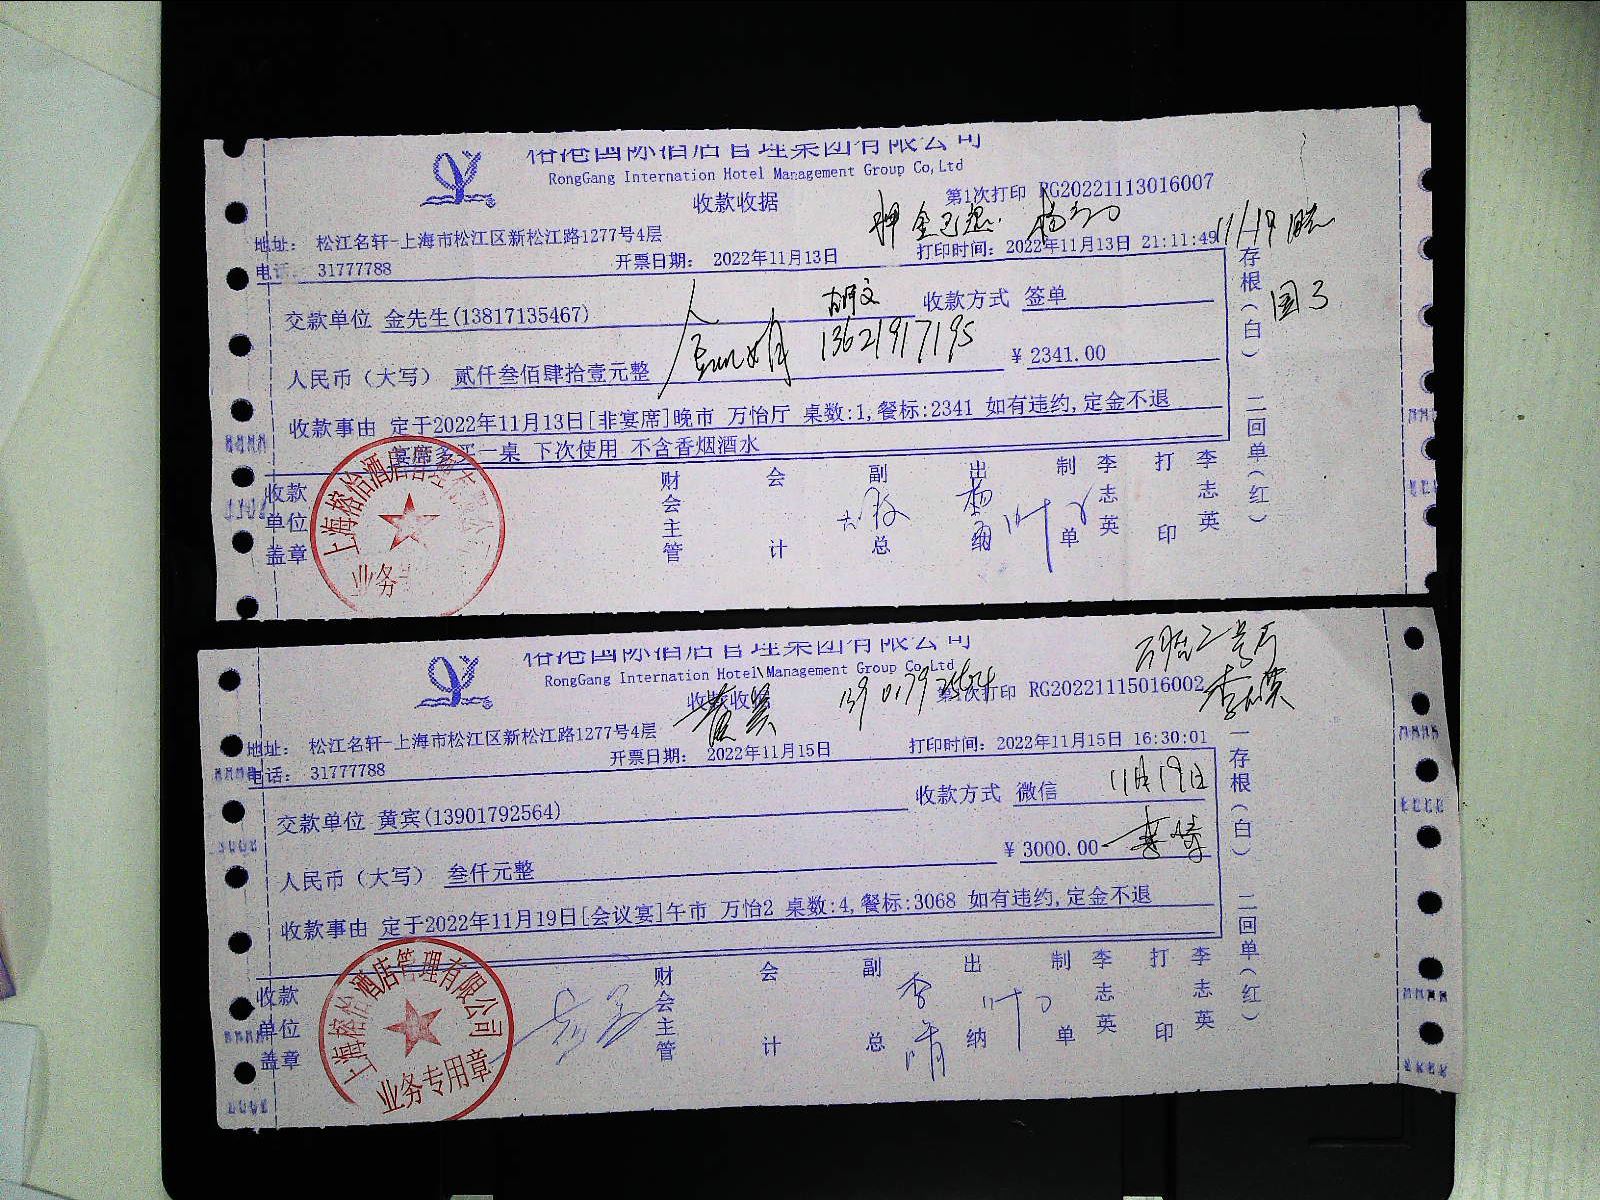 榕港国际酒店管理集团有限公司
RongGang Internation Hotel Management Group Co,Ltd
收款收据
第1次打印 RG20221113016007
押金已退
11/19
地址： 松江名轩-上海市松江区新松江路1277号4层
电话： 31777788
开票日期： 2022年11月13日
打印时间：2022年11月13日 21:11:49
交款单位 金先生(13817135467)
收款方式 签单
13621917195
人民币（大写） 贰仟叁佰肆拾壹元整
¥ 2341.00
收款事由 定于2022年11月13日[非宴席]晚市 万怡厅 桌数:1,餐标:2341 如有违约,定金不退
宴席多买一桌 下次使用 不含香烟酒水
一存根（白） 二回单（红）
收款单位盖章
财会主管 会计 副总 出纳 制单 李志英 打印 李志英
上海榕怡酒店管理有限公司
业务
榕港国际酒店管理集团有限公司
RongGang Internation Hotel Management Group Co,Ltd
收款收据
第1次打印 RG20221115016002
地址： 松江名轩-上海市松江区新松江路1277号4层
电话： 31777788
开票日期： 2022年11月15日
打印时间：2022年11月15日 16:30:01
交款单位 黄宾(13901792564)
收款方式 微信
11月19日
人民币（大写） 叁仟元整
¥ 3000.00
收款事由 定于2022年11月19日[会议宴]午市 万怡2 桌数:4,餐标:3068 如有违约,定金不退
一存根（白） 二回单（红）
收款单位盖章
财会主管 会计 副总 出纳 制单 李志英 打印 李志英
上海榕怡酒店管理有限公司
业务专用章